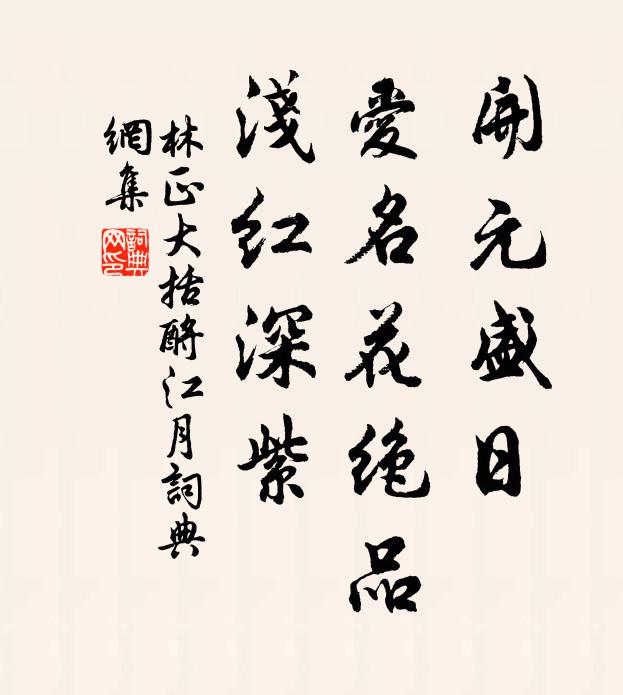 開元盛日
愛名花绝品
淺红深紫
林正大括酹江月詞典
網集
詞典
网印